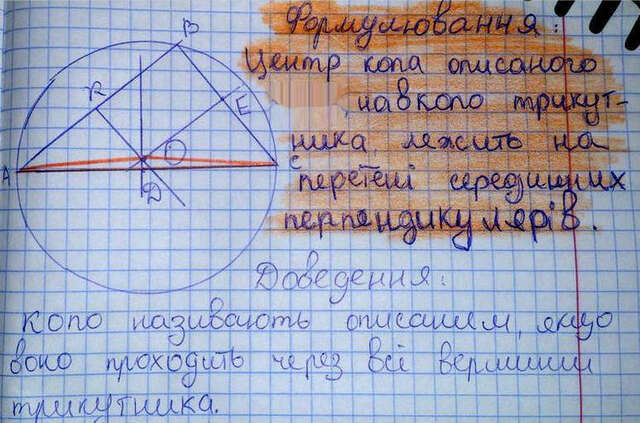 Формулювання:
Центр кола описаного
навколо трикут-
ника лежить на
перетені серединних
перпендикулярів.
B
R
E
O
A
C
D
Доведення:
Коло називають описаним, якщо
воно проходить через всі вершини
трикутника.